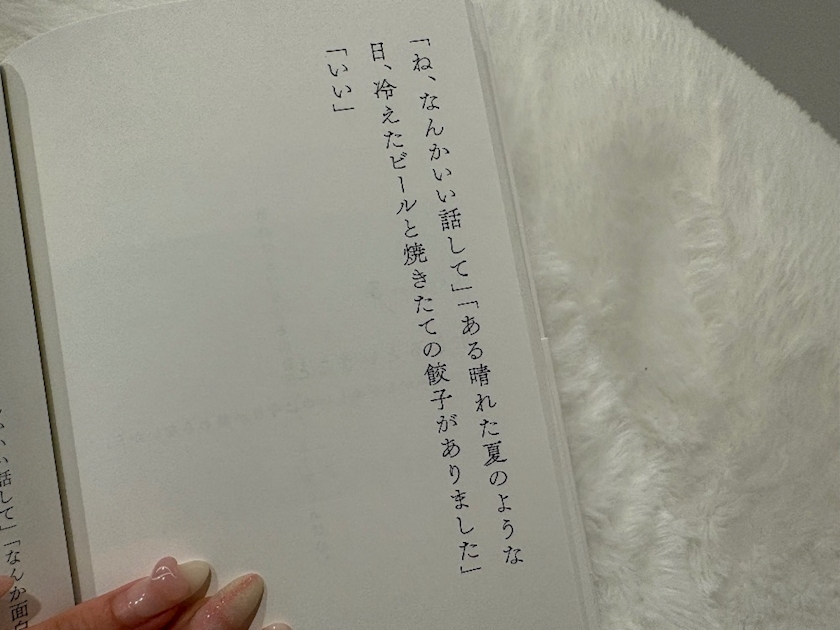 「ね、なんかいい話して」「ある晴れた夏のような
日、冷えたビールと焼きたての餃子がありました」
「いい」
いい話して」「なんか面白